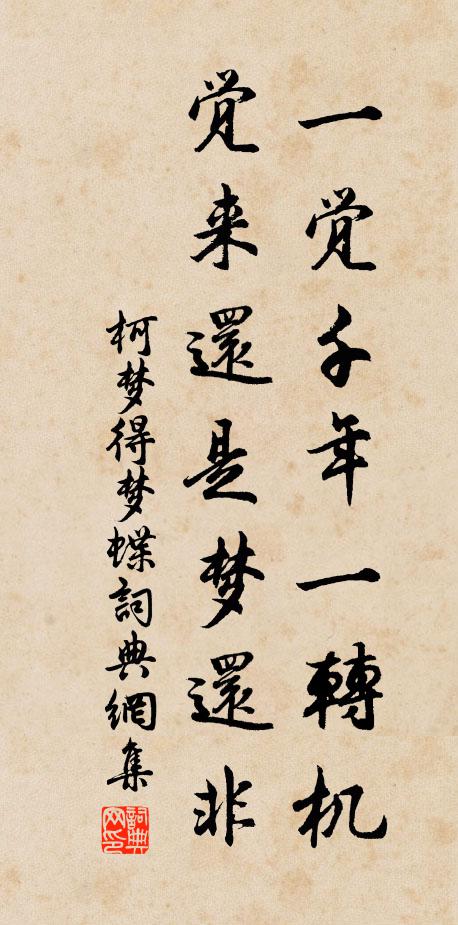 一觉千年一轉机
觉来還是梦還非
柯梦得梦蝶詞典網集
詞典网印